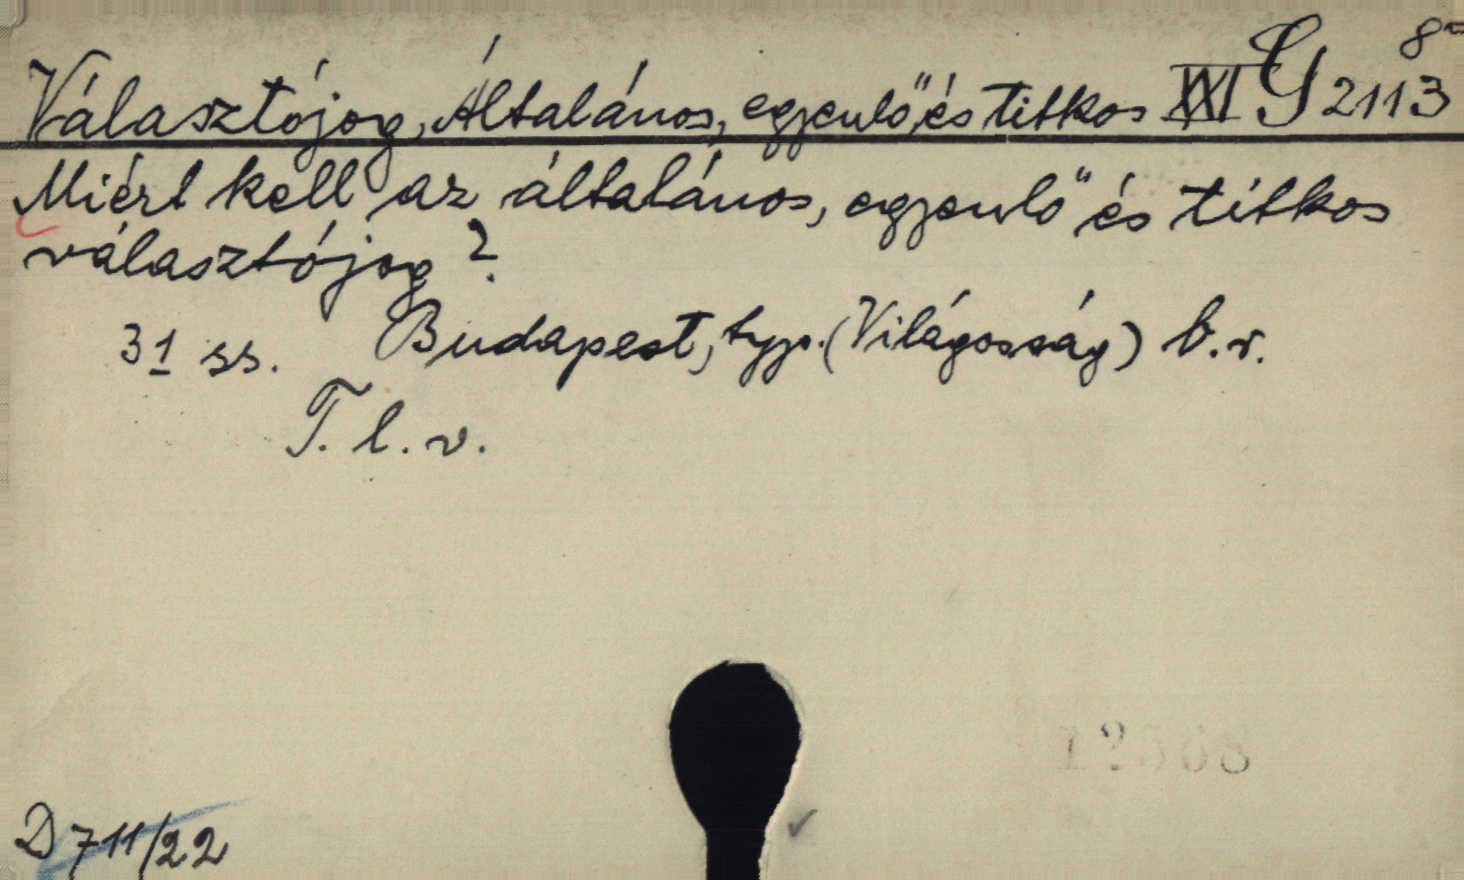 Választójog, Általános, egyenlő és titkos XXI G 2113 8º
Miért kell az általános, egyenlő és titkos
választójog?
31 ss. Budapest, typ. (Világosság) É. n.
T. l. v.
D 711/22